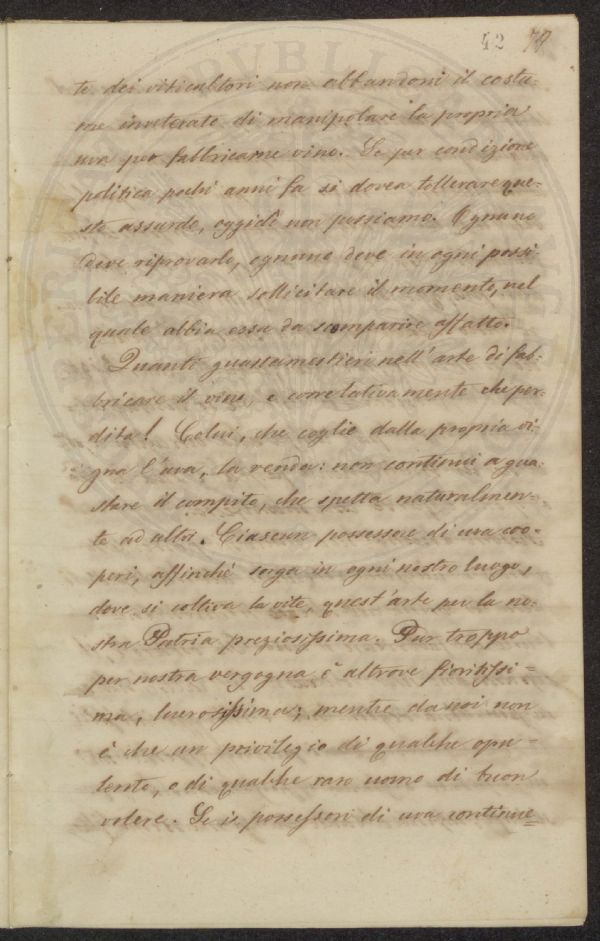 42 74
te dei viticultori non abbandoni il costu-
me inveterato di manipolare la propria
uva per fabbricarne vino. Se per condizione
politica pochi anni fa si dovea tollerare que-
sto assurdo, oggidì non possiamo. Ognuno
deve riprovarlo, ognuno deve in ogni possi-
bile maniera sollicitare il momento, nel
quale abbia esso da scomparire affatto.
Quanti guastamestieri nell' arte di fab-
bricare il vino, e correlativamente che per-
dita! Colui, che coglie dalla propria vi-
gna l'uva, la venda: non continui a gua-
stare il compito, che spetta naturalmen-
te ad altri. Ciascun possessore di uva coo-
peri, affinchè sorga in ogni nostro luogo,
dove si coltiva la vite, quest' arte per la no-
stra Patria preziosissima. Pur troppo
per nostra vergogna è altrove fioritissi=
ma, lucrosissima; mentre da noi non
è che un privilegio di qualche opu-
lento, o di qualche raro uomo di buon
volere. Se i possessori di uva continue=